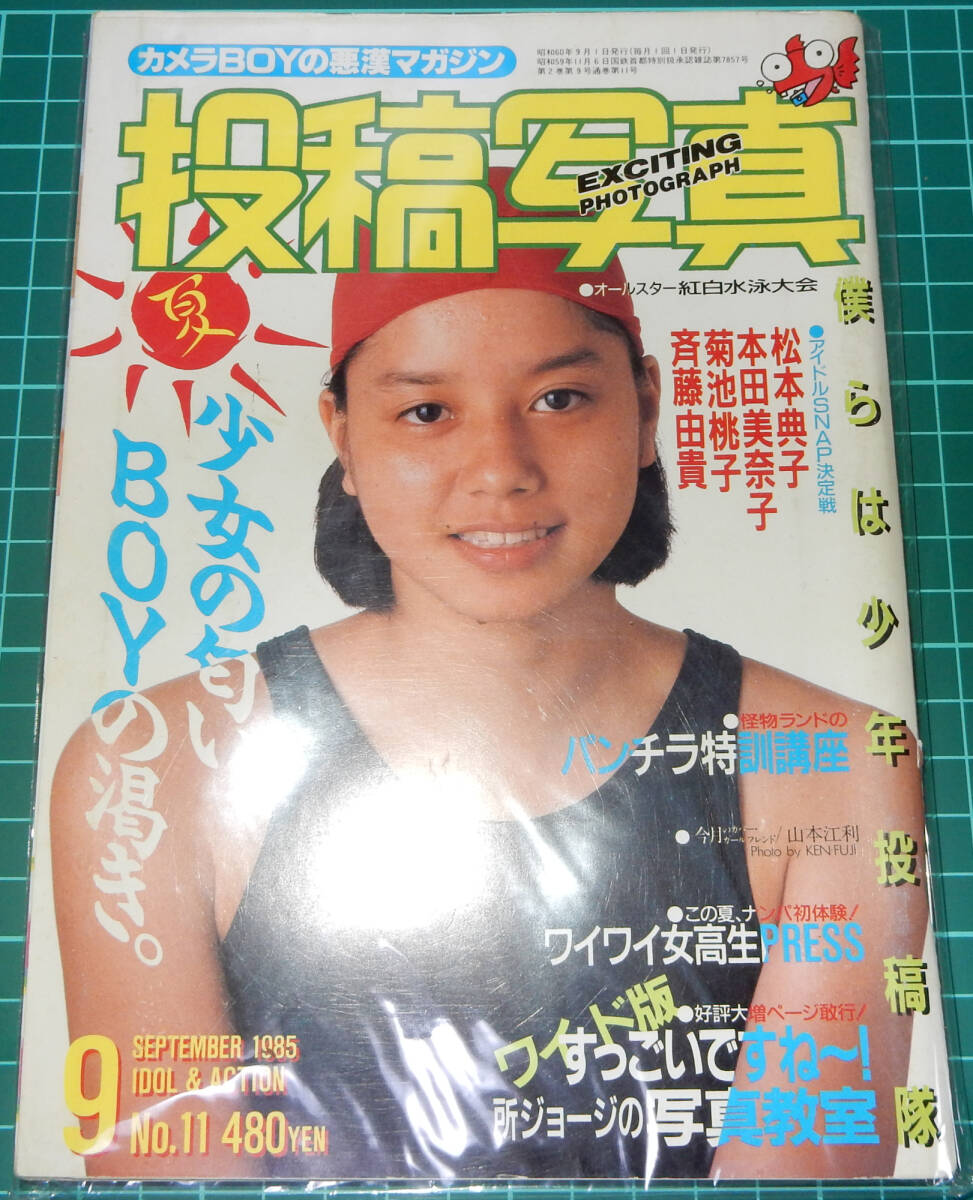 カメラBOYの悪漢マガジン
昭和60年9月1日発行(毎月1回1日発行)
昭和59年11月6日国鉄首都特別扱承認雑誌第7857号
第2巻第9号通巻第11号
投稿写真
EXCITING
PHOTOGRAPH
夏
少女の匂い
BOYの渇き。
●オールスター紅白水泳大会
●アイドルSNAP決定戦
松本典子
本田美奈子
菊池桃子
斉藤由貴
僕らは少年投稿隊
●怪物ランドの
パンチラ特訓講座
●今月のカバーガールフレンド/山本江利
Photo by KEN・FUJI
●この夏、ナンパ初体験!
ワイワイ女高生PRESS
ワイド版
●好評大増ページ敢行!
すっごいですね〜!
所ジョージの写真教室
9
SEPTEMBER 1985
IDOL & ACTION
No.11 480YEN